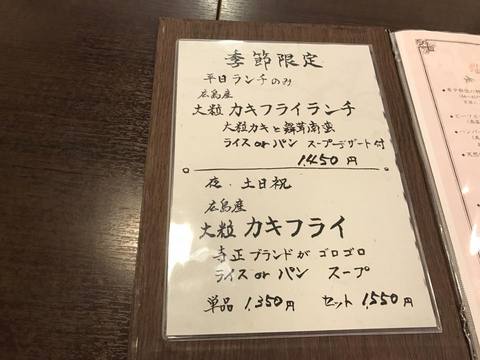 季節限定
平日ランチのみ
広島産
大粒 カキフライランチ
大粒カキと舞茸
ライス or パン スープデザート付
1,450円
夜・土日祝
広島産
大粒 カキフライ
ブランドがゴロゴロ
ライス or パン スープ
単品 1,350円 セット 1,550円